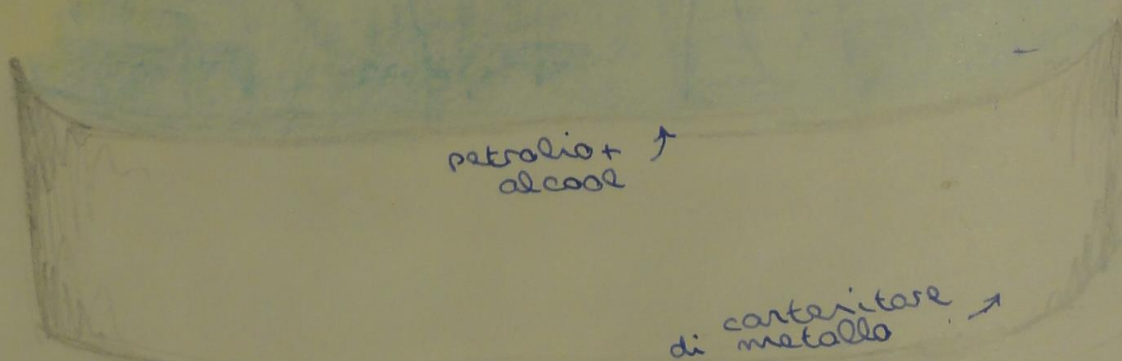 petrolio+
alcool
contenitore
di metallo